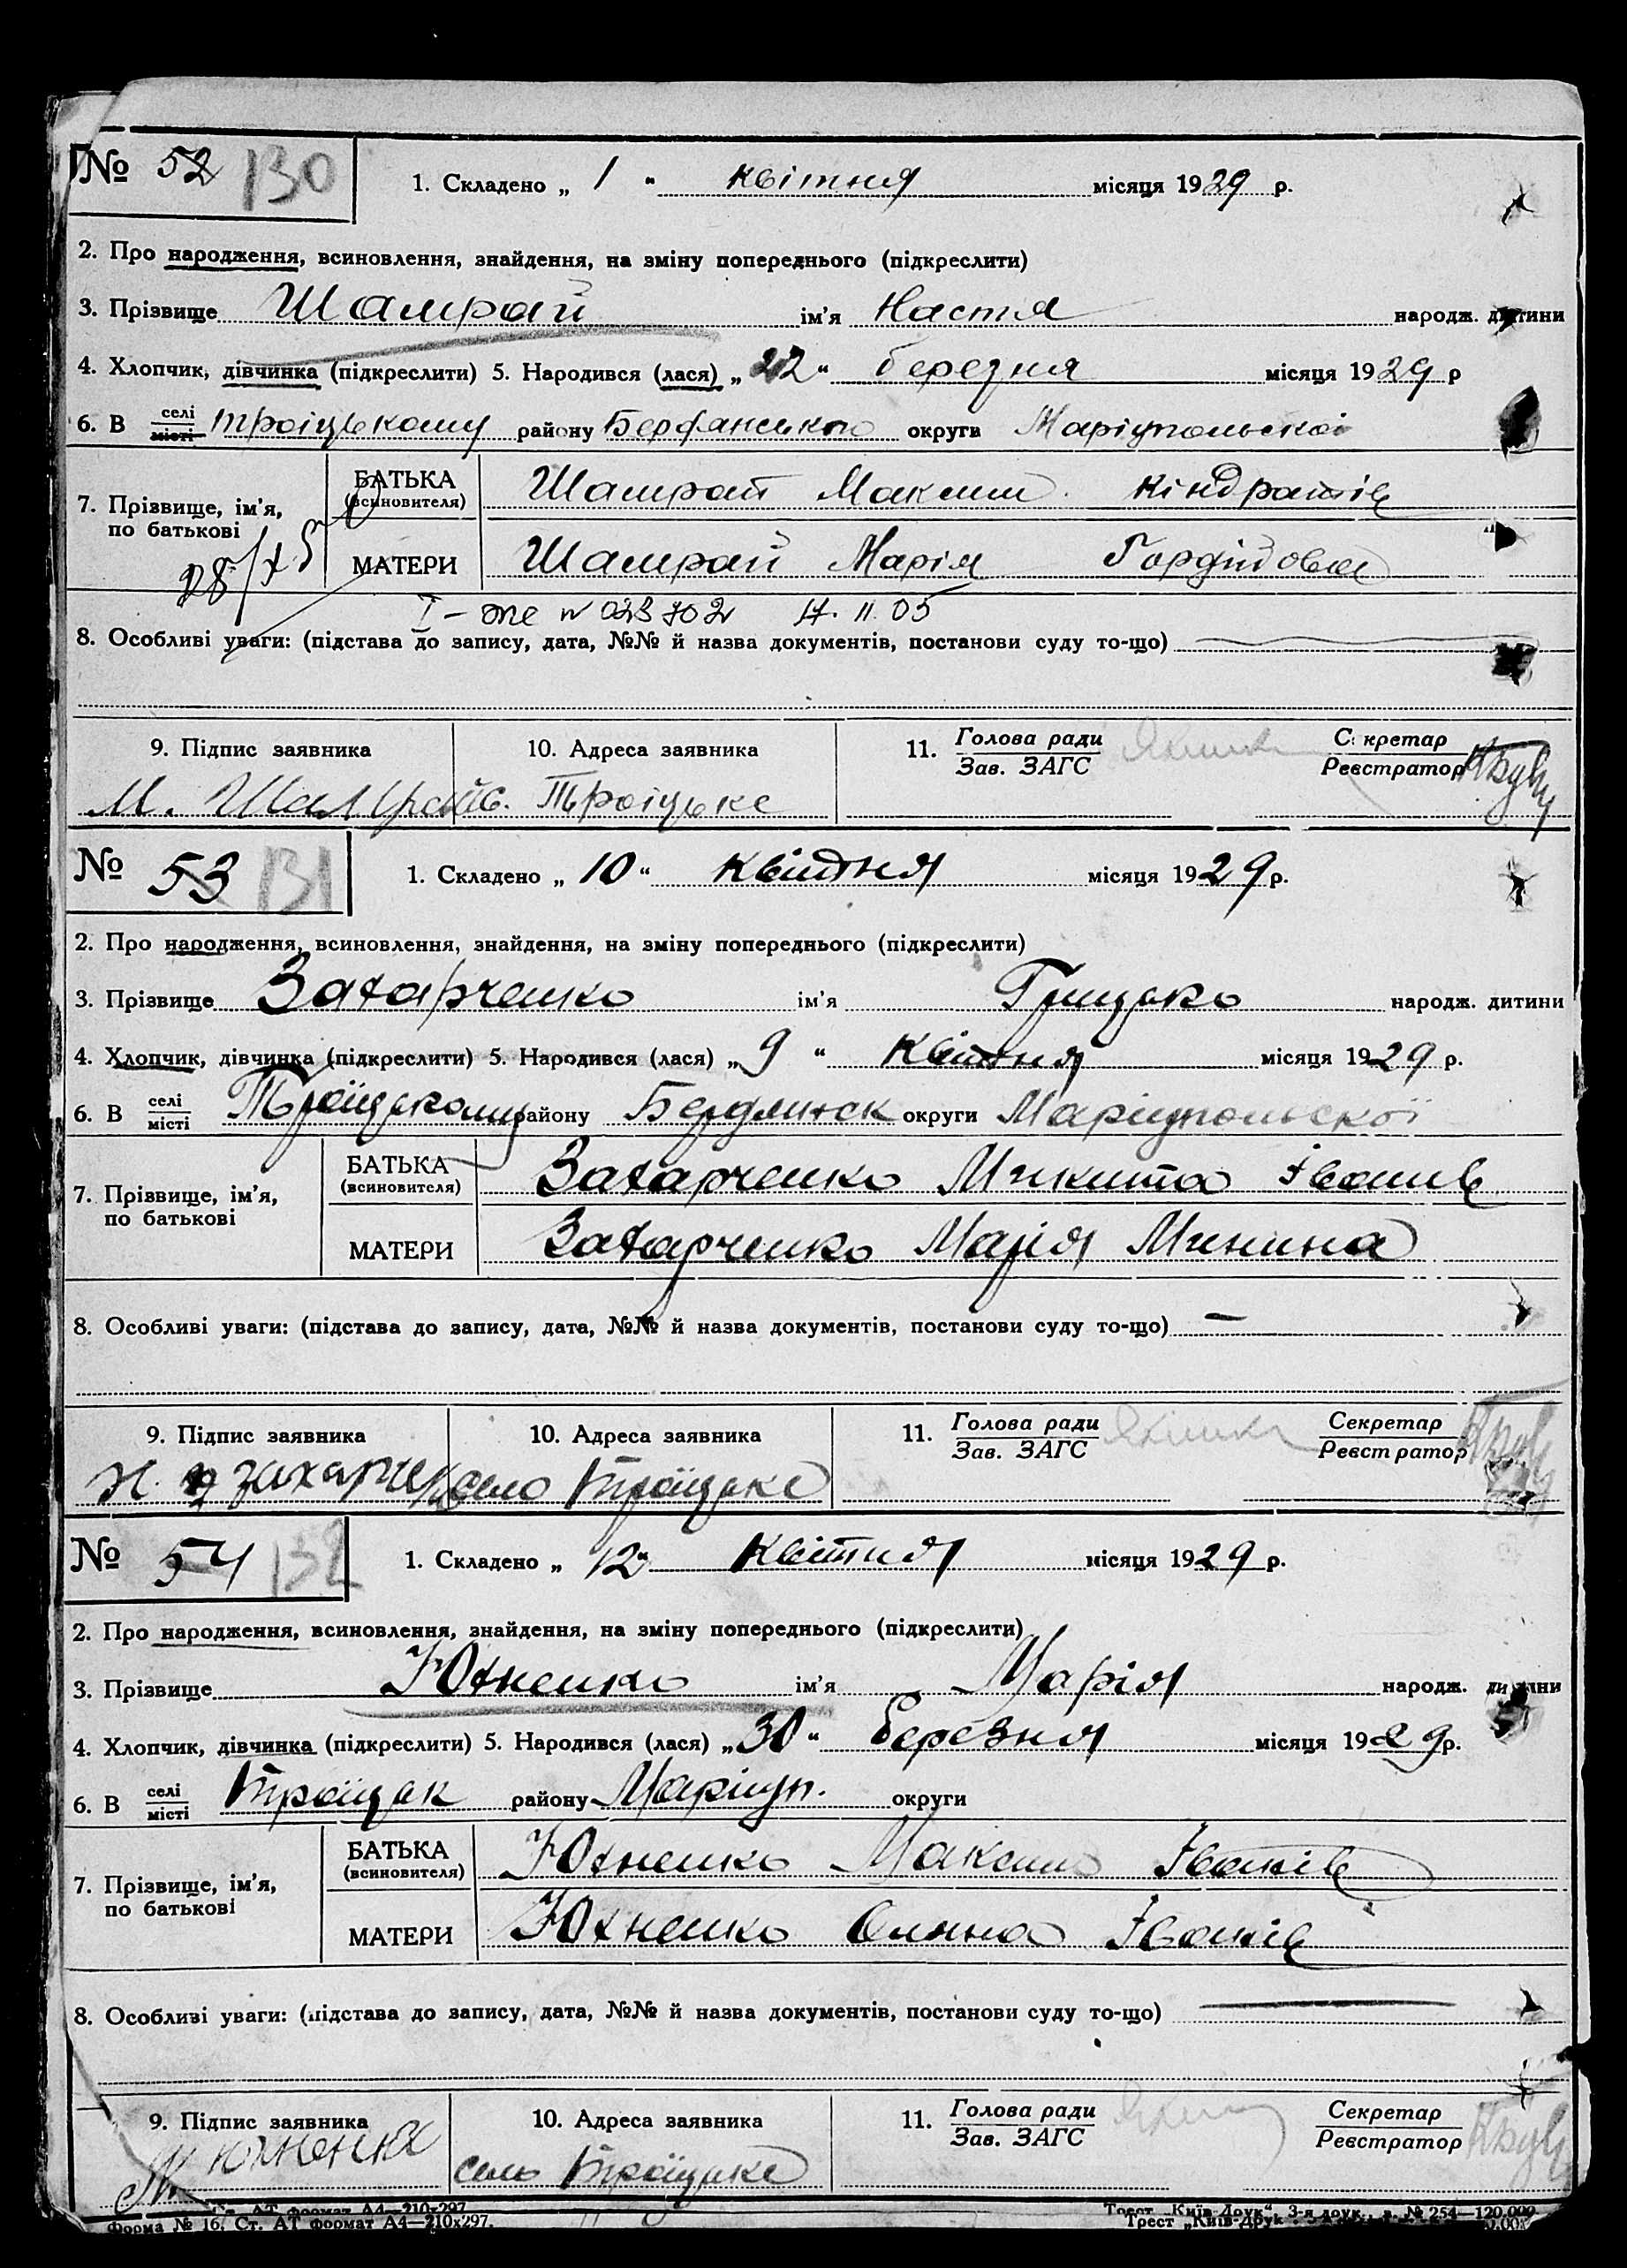 № 52 130 1. Складено „ 1 " квітня місяця 1929 р.
2. Про народження, всиновлення, знайдення, на зміну попереднього (підкреслити)
3. Прізвище Шамрай ім'я Настя народж. дитини
4. Хлопчик, дівчинка (підкреслити) 5. Народився (лася) „ 22 " березня місяця 1929 р
6. В селі місті Троіцькому району Бердянського округи Маріупольскоі
7. Прізвище, ім'я, по батькові
БАТЬКА (всиновителя) Шамрай Максим Кіндратів
МАТЕРИ Шамрай Марія Гордіїдовна
І - же № 023702 17. 11. 05
8. Особливі уваги: (підстава до запису, дата, №№ й назва документів, постанови суду то-що)
9. Підпис заявника 10. Адреса заявника 11. Голова ради Зав. ЗАГС Секретар Реєстратор
М. Шамрай с. Троіцьке
№ 53 131 1. Складено „ 10 " Квітня місяця 1929 р.
2. Про народження, всиновлення, знайдення, на зміну попереднього (підкреслити)
3. Прізвище Захарченко ім'я Грицько народж. дитини
4. Хлопчик, дівчинка (підкреслити) 5. Народився (лася) „ 9 " Квітня місяця 1929 р.
6. В селі місті Троїцькому району Бердянськ округи Маріупольскої
7. Прізвище, ім'я, по батькові
БАТЬКА (всиновителя) Захарченко Микита Іванів
МАТЕРИ Захарченко Марія Минина
8. Особливі уваги: (підстава до запису, дата, №№ й назва документів, постанови суду то-що) —
9. Підпис заявника 10. Адреса заявника 11. Голова ради Зав. ЗАГС Секретар Реєстратор
Н. захарченко село Троїцьке
№ 54 132 1. Складено „ 12 " Квітня місяця 1929 р.
2. Про народження, всиновлення, знайдення, на зміну попереднього (підкреслити)
3. Прізвище Юхненко ім'я Марія народж. дитини
4. Хлопчик, дівчинка (підкреслити) 5. Народився (лася) „ 30 " Березня місяця 1929 р.
6. В селі місті Троїцьк району Маріуп. округи
7. Прізвище, ім'я, по батькові
БАТЬКА (всиновителя) Юхненко Максим Іванів
МАТЕРИ Юхненко Олина Іванів
8. Особливі уваги: (підстава до запису, дата, №№ й назва документів, постанови суду то-що)
9. Підпис заявника 10. Адреса заявника 11. Голова ради Зав. ЗАГС Секретар Реєстратор
М юхненко село Троїцьке
Форма № 16. Ст. АТ формат А4—210х297. Трест „Київ-Друк" 3-я друк., з. № 254—120.000